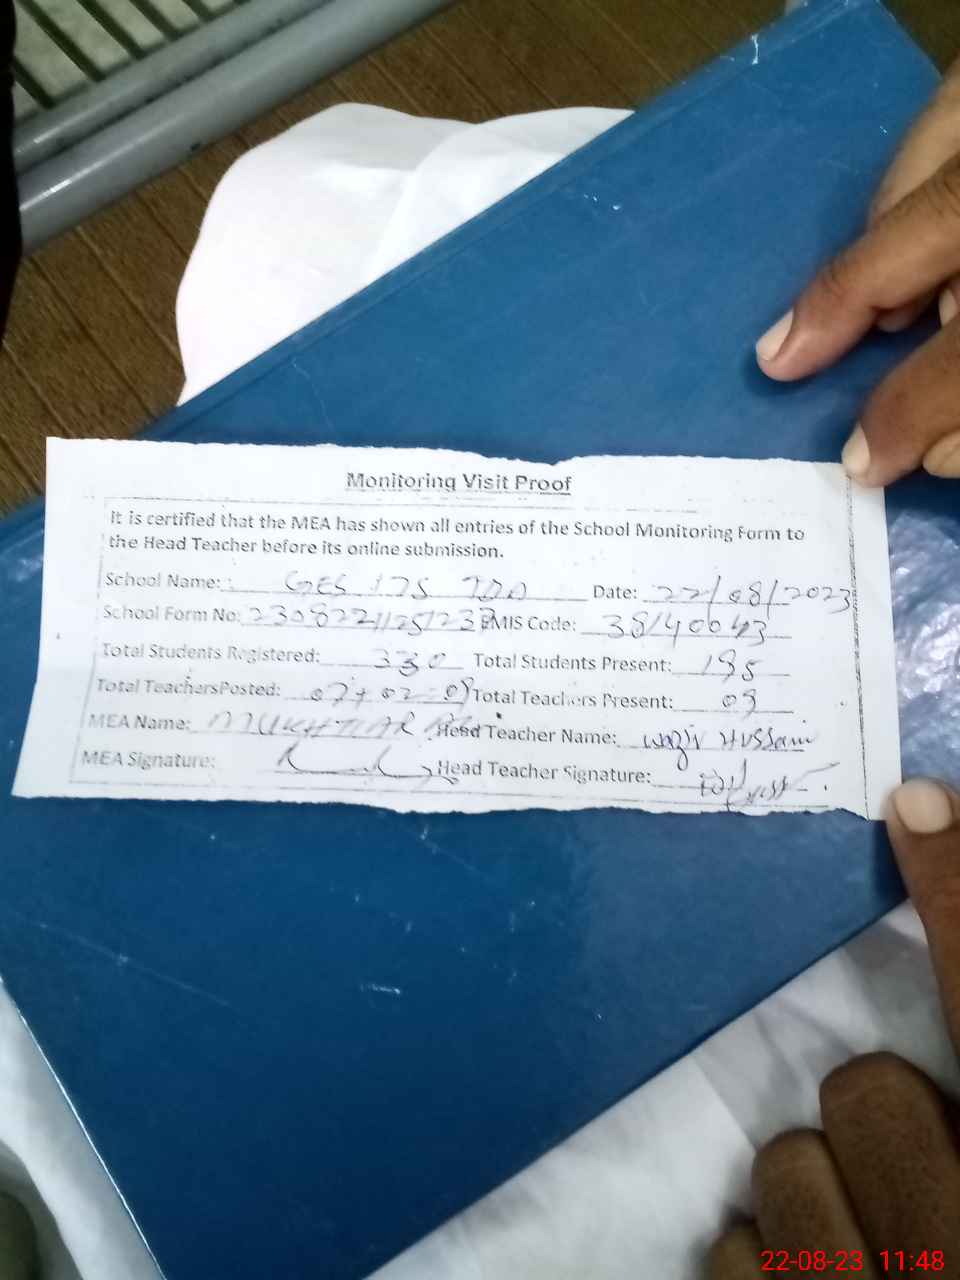 Monitoring Visit Proof
It is certified that the MEA has shown all entries of the School Monitoring Form to
the Head Teacher before its online submission.
School Name: GES 175 TDA Date: 22/08/2023
School Form No: EMIS Code: 38140043
Total Students Registered: 330 Total Students Present: 195
Total Teachers Posted: 07+02=09 Total Teachers Present: 09
MEA Name: MUKHTIAR Head Teacher Name: Wazir Hussain
MEA Signature: Head Teacher Signature:
22-08-23 11:48